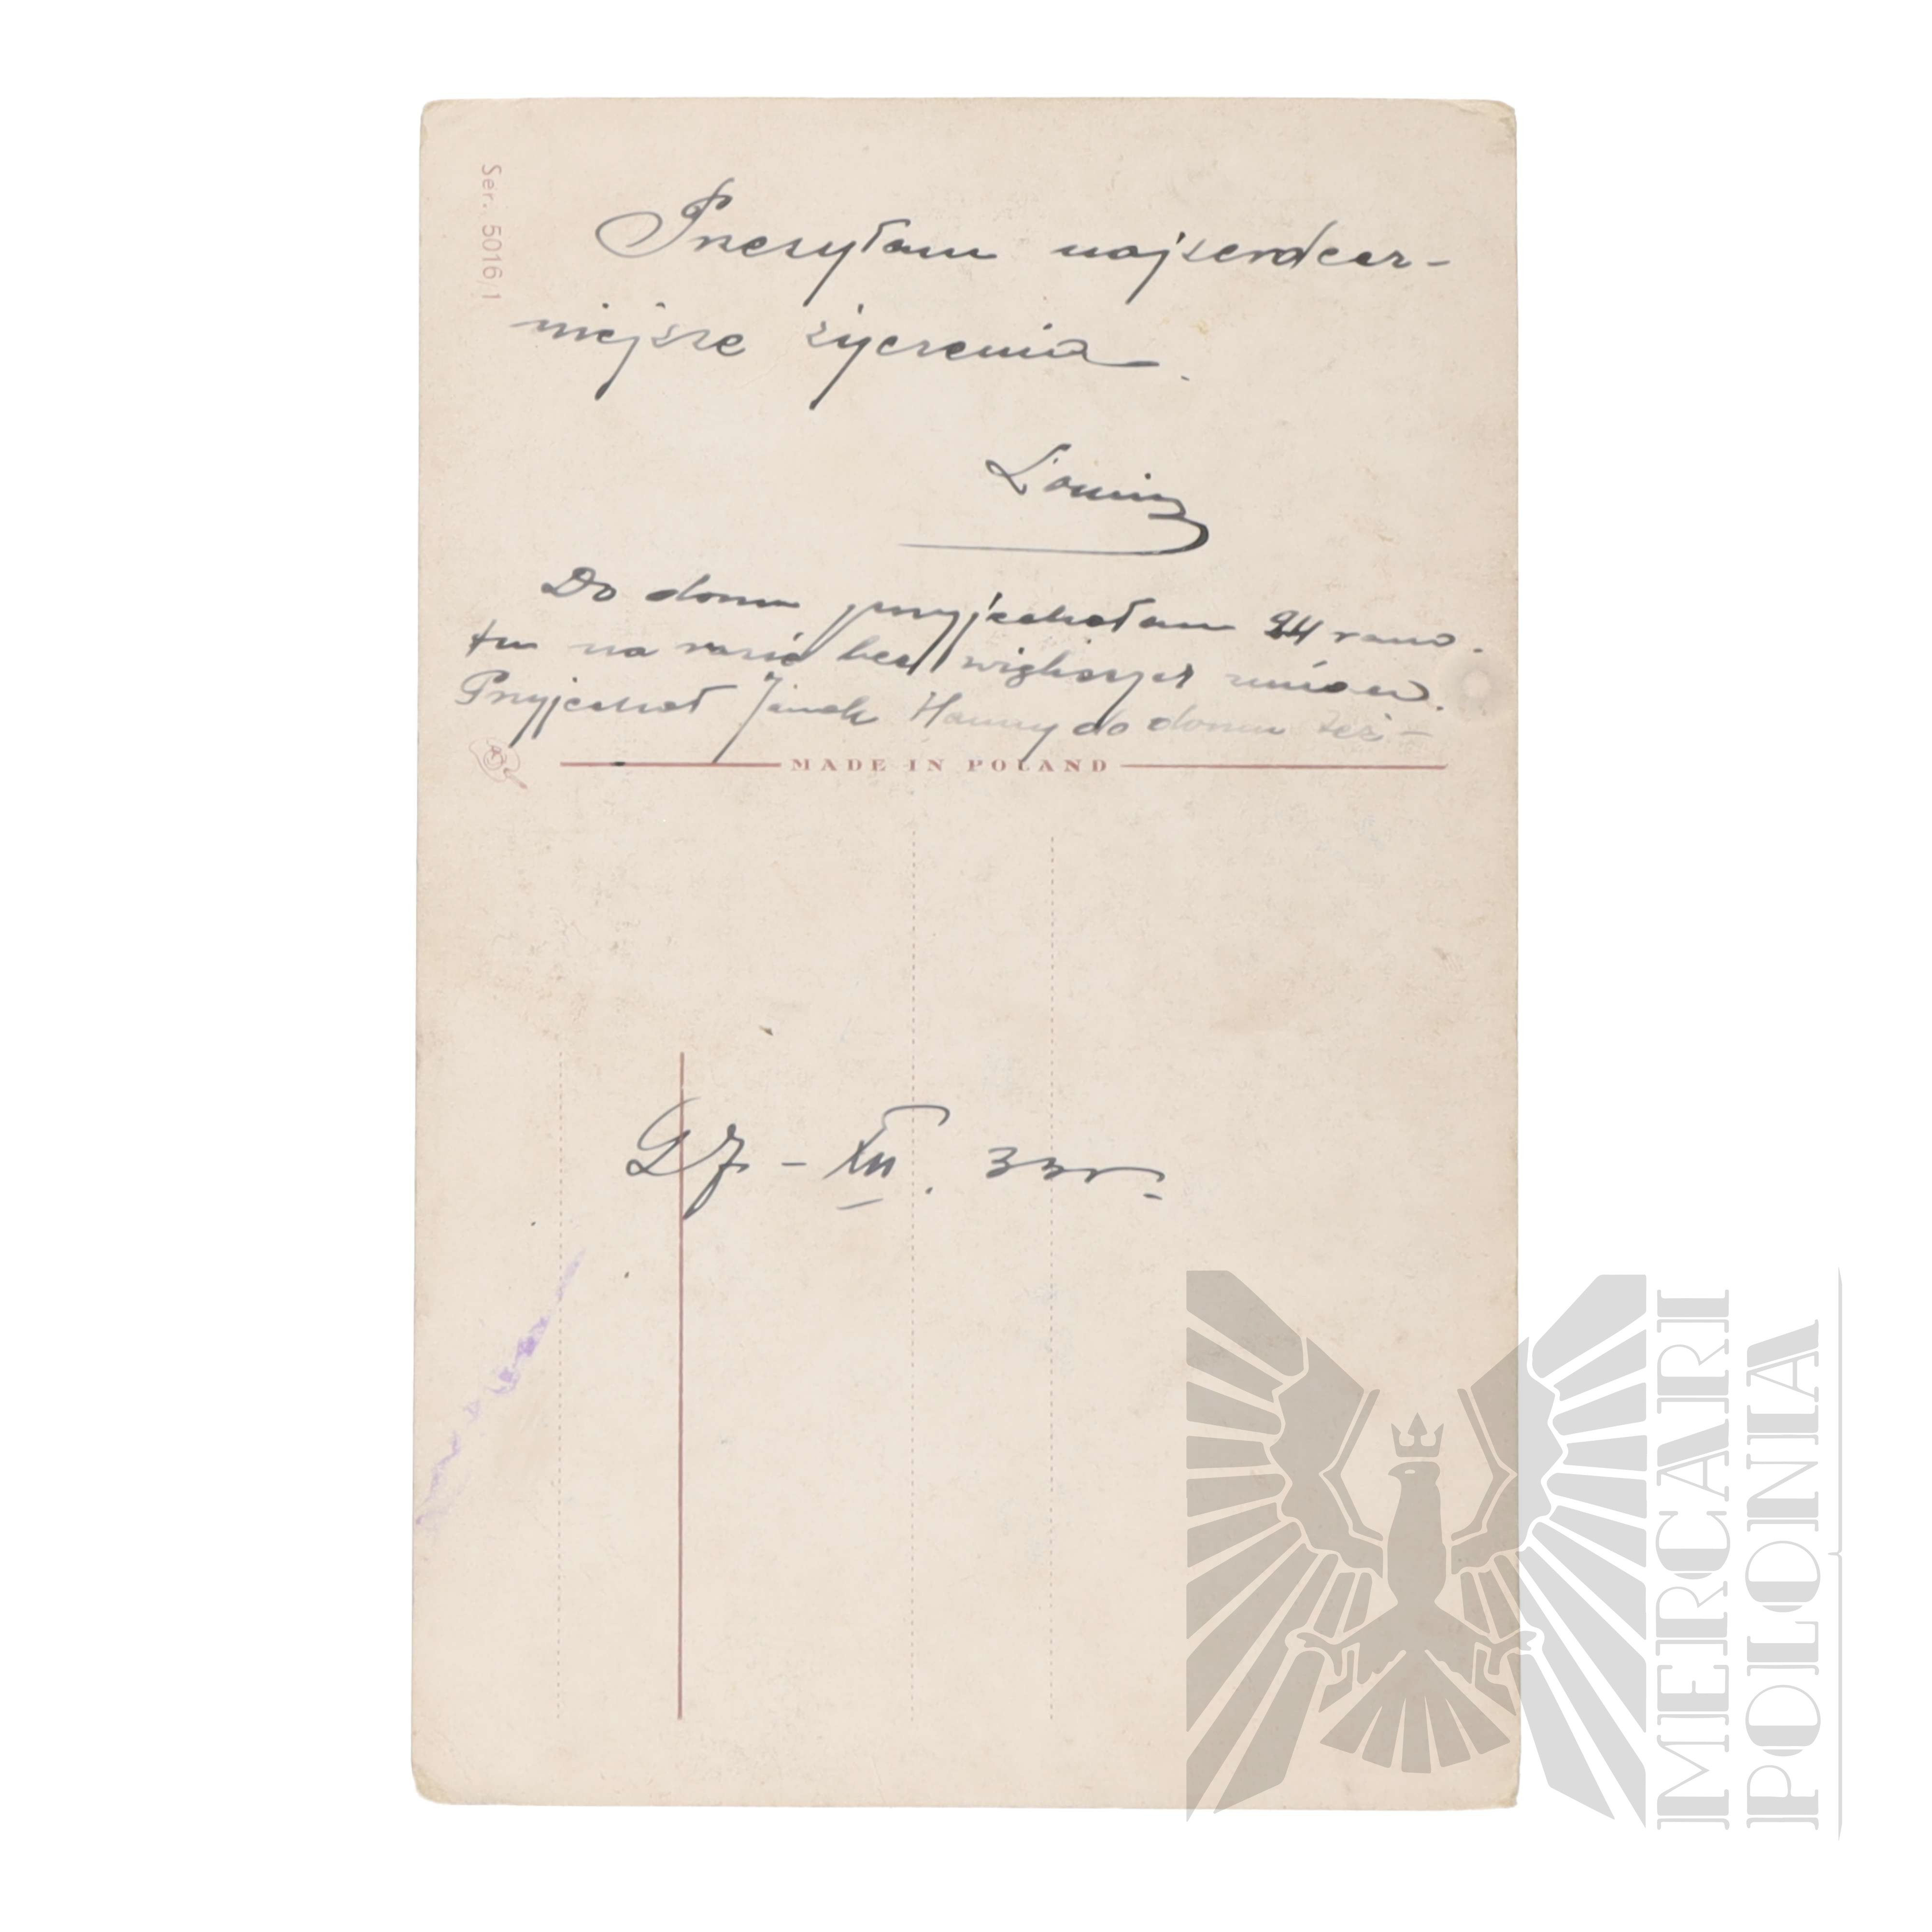 Ser. 5016/1
Przesyłam najserdecz-
niejsze życzenia.
Do domu przyjechałam 24 rano.
tu na razie bez większych zmian.
Przyjechał Janek Hanny do domu też –
MADE IN POLAND
27 – XII. 33r.
MERCARI
POLONIA